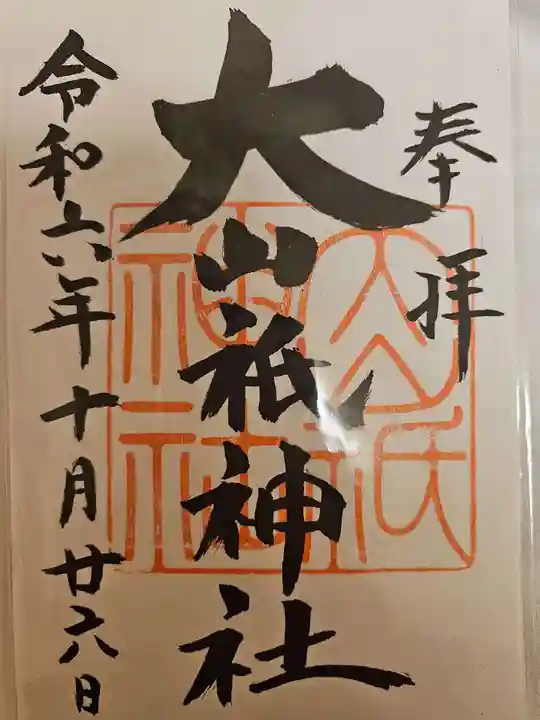 奉拝
大山祇神社
令和六年十月廿六日
大山祇
神社